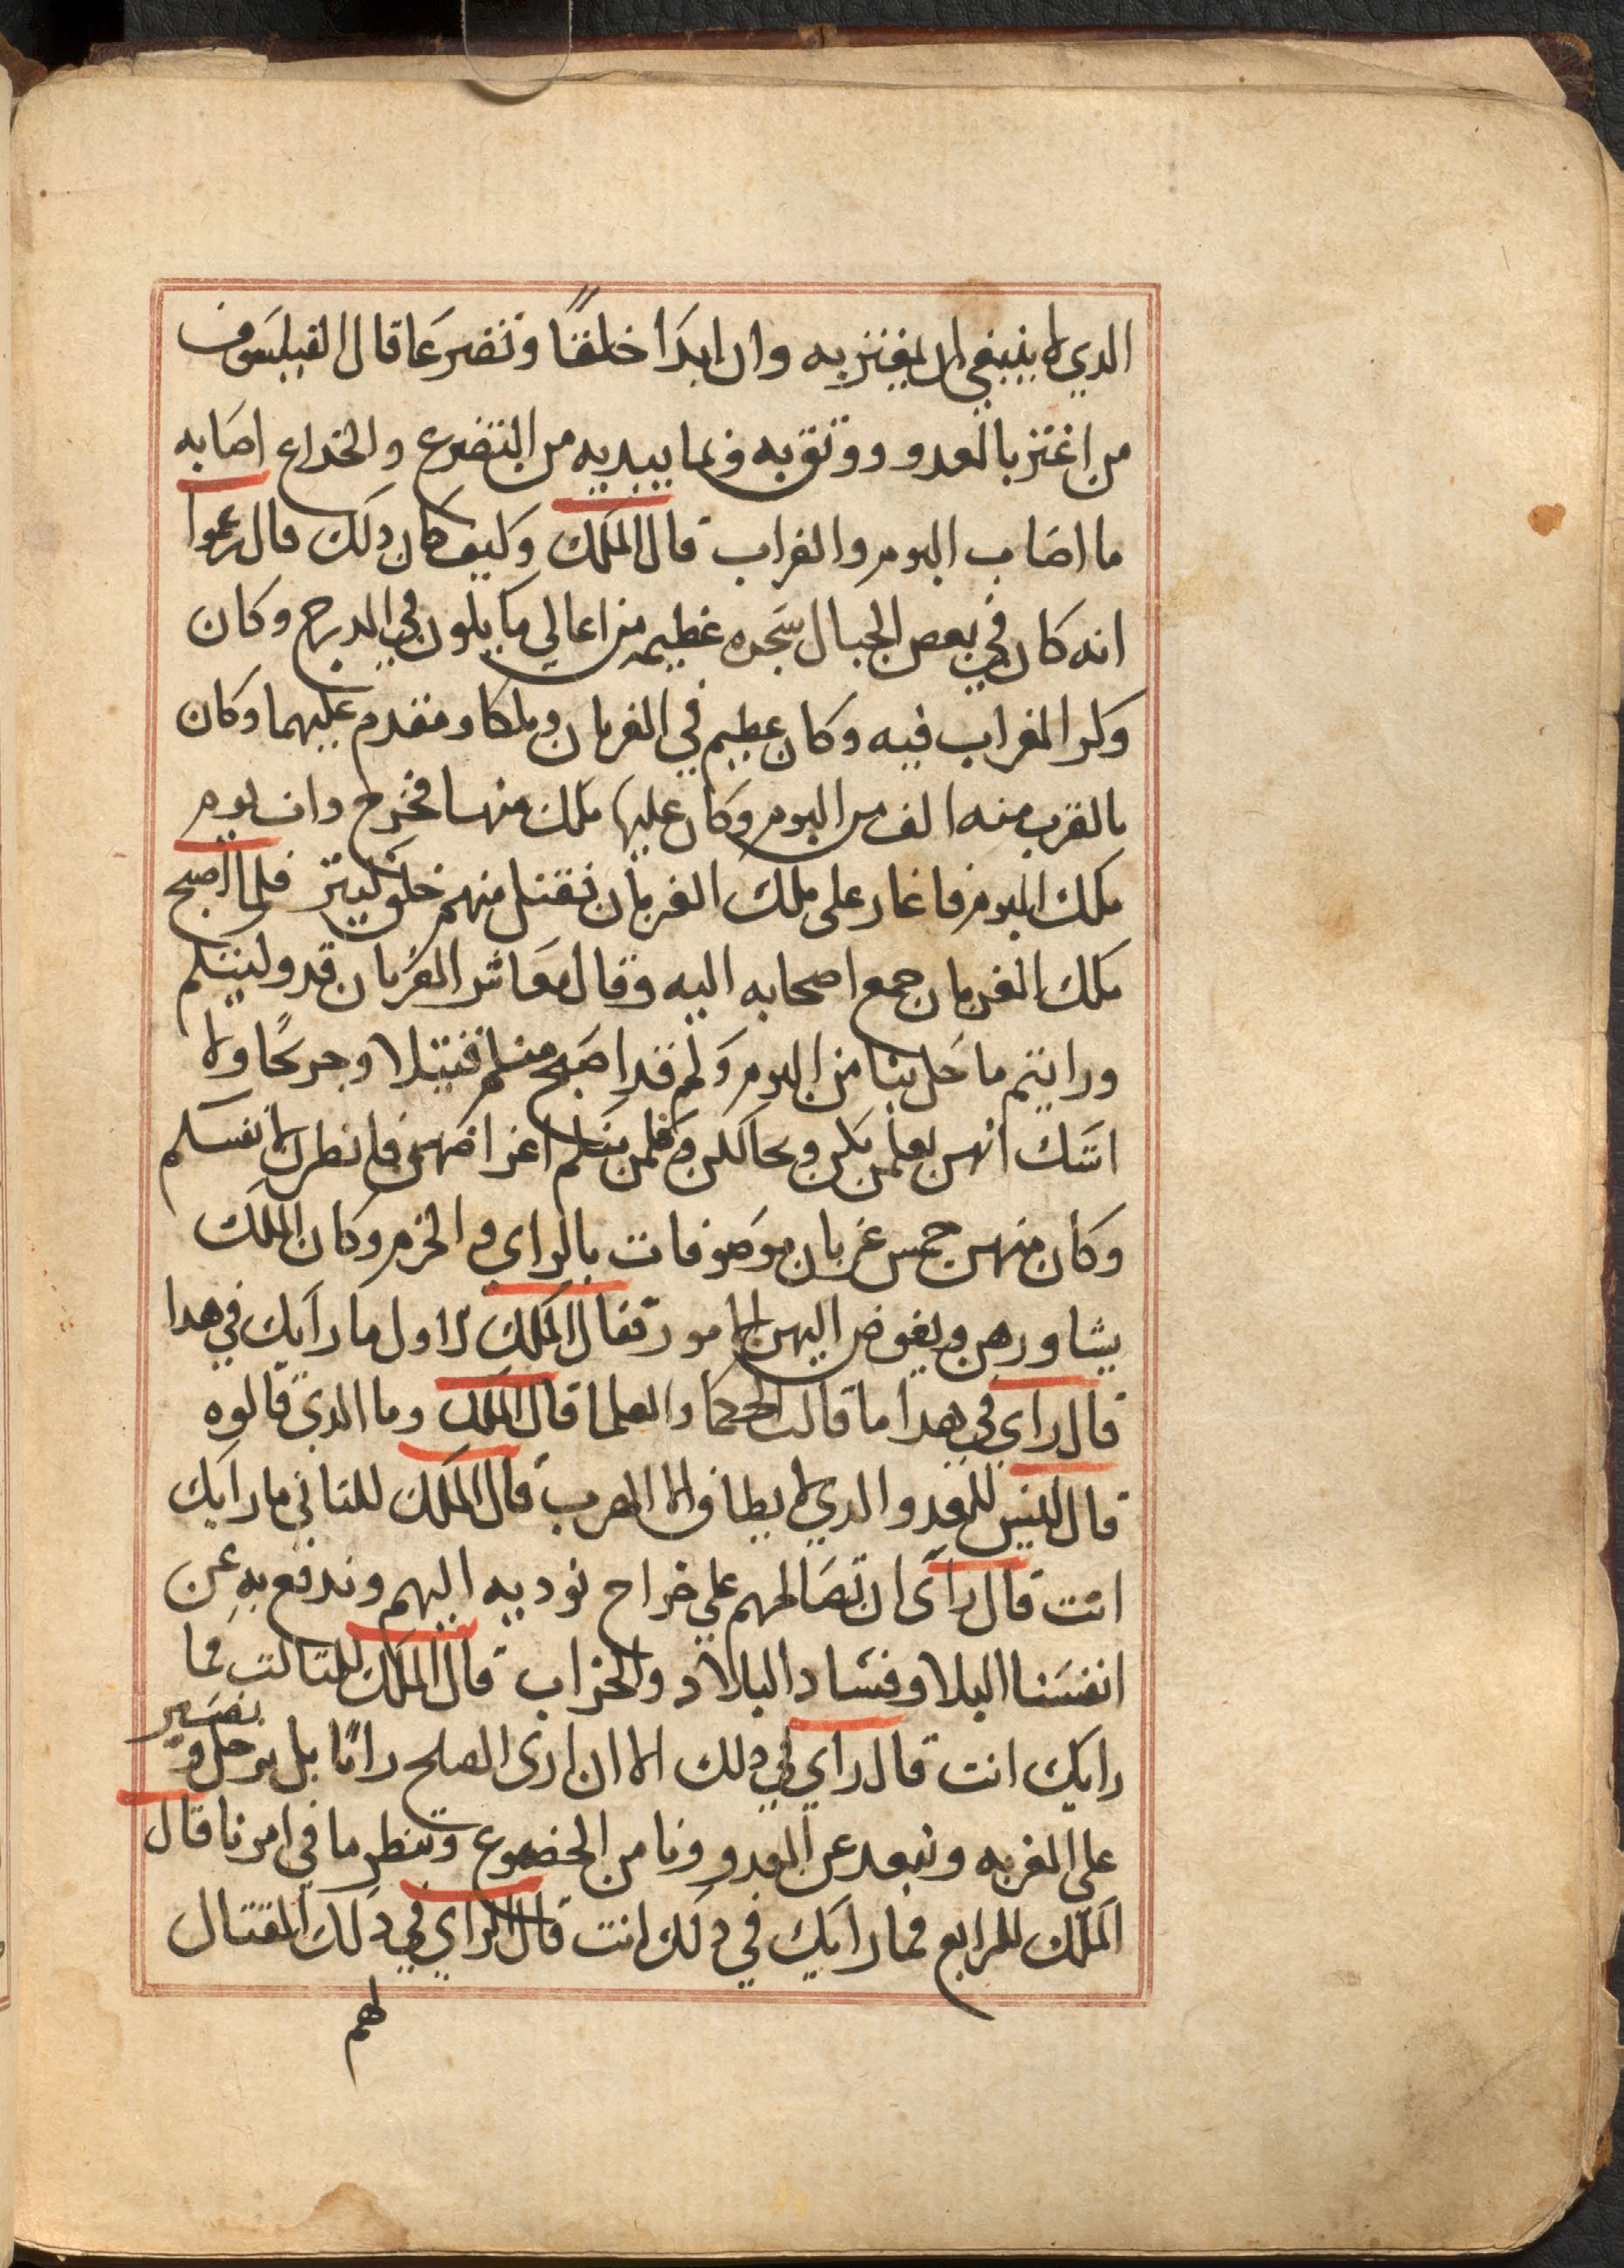 الدي لا ينبغي ان يغتر به وان ابدا خلقًا وتضرعا قال الفيلسوف
من اغتر بالعدو ووتق به فيما يبديه من التضرع والخداع اصابه
ما اصاب البوم والغراب قال الملك وكيف كان دلك قال زعموا
انه كان في بعض الجبال شجره عظيمه من اعالي ما يكون في الدرج وكان
وكر الغراب فيه وكان عظيم في الغربان وملكا ومقدم عليهما وكان
بالقرب منه الف من البوم وكان عليها ملك منها فخرج دات يوم
ملك البوم فاغار على ملك الغربان فقتل منهم خلق كتير فلما اصبح
ملك الغربان جمع اصحابه اليه وقال معاشر الغربان قد
ورايتم ما حل بنا من البوم وكم قد اصبح منكم قتيلا وجريحًا ولا
اشك انهن فانظر لانفسكم
وكان منهن خمس غربان موصوفات بالراي والحزم وكان الملك
يشاورهن ويفوض اليهن الامور فقال الملك للاول ما رايك في هدا
قال راي في هدا ما قالت الحكما والعلما قال الملك وما الدي قالوه
قال ليس للعدو الدي لا يطاق الا الهرب قال الملك للتاني ما رايك
انت قال راى ان تصالحهم علي خراج نوديه اليهم وندفع به عن
انفسنا البلا وفساد البلاد والخراب قال الملك للتالت فما
رايك انت قال راي في دلك الا ان ارى الصلح بل نرحل ونصير
على الغربه ونبعد عن العدو من الخضوع وننظر ما في امرنا قال
الملك للرابع فما رايك في دلك انت قال الراي في دلك القتال
لهم